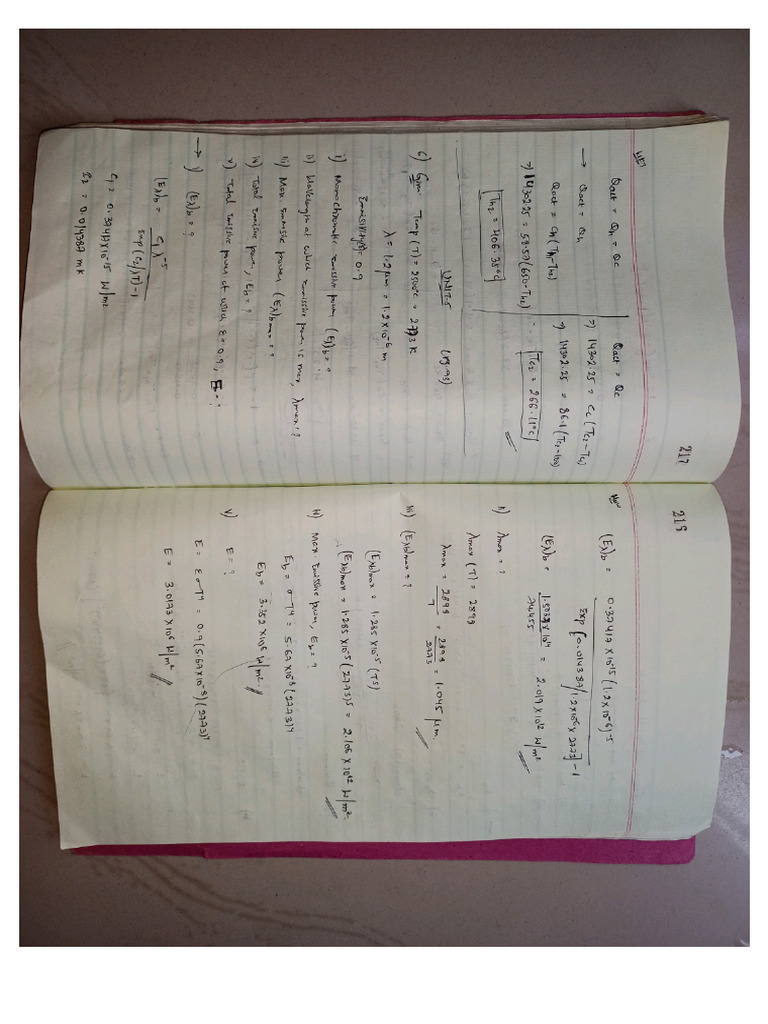 217
Qact = Qh = Qc
→ Qact = Qh
Qact = Ch (Th1 - Th2)
⇒ 14302.25 = 58.57 (650 - Th2)
Th2 = 406.35°C
Qact = Qc
⇒ 14302.25 = Cc (Tc2 - Tc1)
⇒ 14302.25 = 86.1 (Tc2 - 100)
Tc2 = 266.11°C
UNIT-5
6) Given Temp (T) = 2500°C = 2773 K
λ = 1.2 μm = 1.2 × 10⁻⁶ m
Emissivity(ε) = 0.9
i) Monochromatic Emissive power (Eλ)b = ?
ii) Wavelength at which Emissive power is max, λmax = ?
iii) Max. Emissive power (Eλ)b max = ?
iv) Total Emissive power, Eb = ?
v) Total Emissive power at which ε = 0.9, E = ?
→ i) (Eλ)b = ?
(Eλ)b = C1 λ⁻⁵ / exp(C2/λT) - 1
C1 = 0.37417 × 10⁻¹⁵ W/m²
C2 = 0.014387 mK
218
(Eλ)b = 0.37417 × 10⁻¹⁵ (1.2 × 10⁻⁶)⁻⁵ / Exp [0.014387 / 1.2 × 10⁻⁶ × 2773] - 1
(Eλ)b = = 2.019 × 10¹² W/m²
ii) λmax = ?
λmax (T) = 2899
λmax = 2899 / T = 2899 / 2773 = 1.045 μm.
iii) (Eλb)max = ?
(Eλb)max = 1.285 × 10⁻⁵ (T⁵)
(Eλb)max = 1.285 × 10⁻⁵ (2773)⁵ = 2.106 × 10¹² W/m²
iv) Max Emissive power, Eb = ?
Eb = σT⁴ = 5.67 × 10⁻⁸ (2773)⁴
Eb = 3.352 × 10⁶ W/m²
v) E = ?
E = εσT⁴ = 0.9 (5.67 × 10⁻⁸) (2773)⁴
E = 3.0173 × 10⁶ W/m²